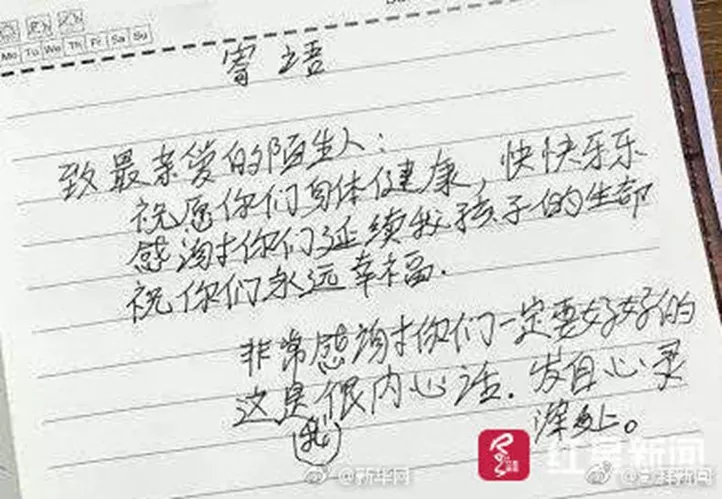 Mo Tu We Th Fr Sa Su
寄语
致最亲爱的陌生人：
祝愿你们身体健康，快快乐乐
感谢你们延续我孩子的生命
祝你们永远幸福.
非常感谢你们一定要好好的
这是很内心话.发自心灵
(我) 深处。
红星新闻
@新华网